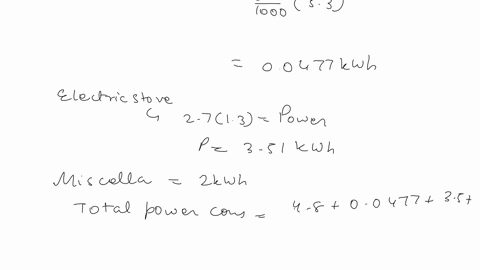 1000 (5.3)
= 0.0477 kWh
Electric stove
↳ 2.7(1.3) = Power
P = 3.51 kWh
Miscella = 2kWh
Total power cons = 4.8 + 0.0477 + 3.5+